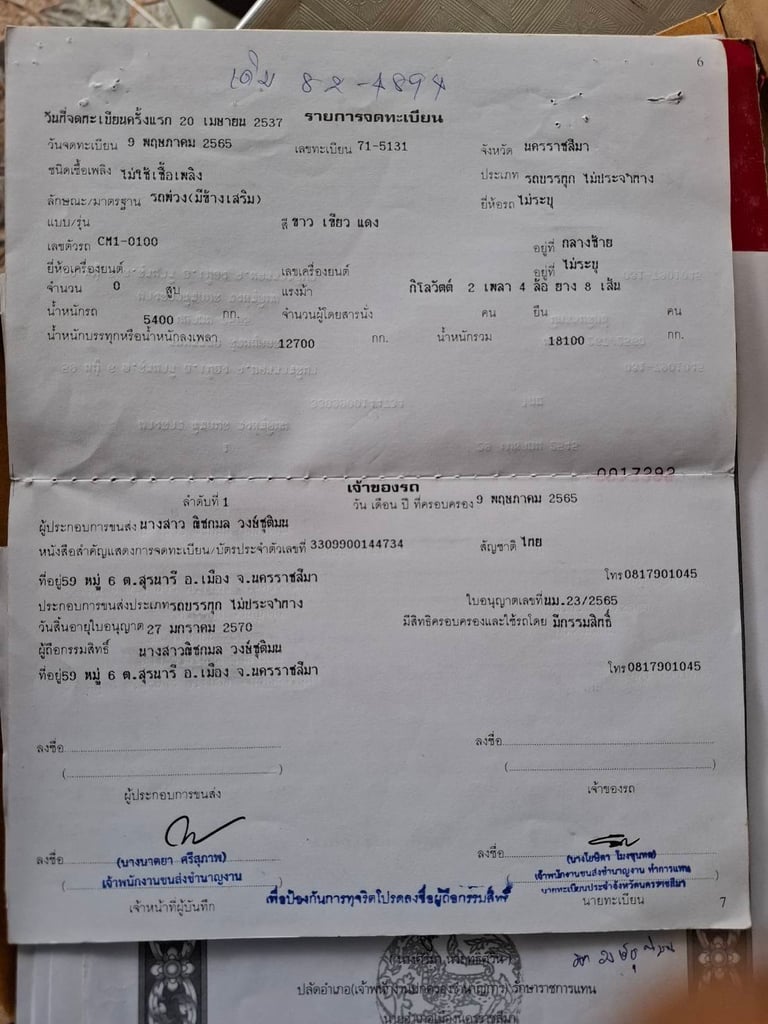 6
เดิม 82-4894
วันที่จดทะเบียนครั้งแรก 20 เมษายน 2537 รายการจดทะเบียน
วันจดทะเบียน 9 พฤษภาคม 2565 เลขทะเบียน 71-5131 จังหวัด นครราชสีมา
ชนิดเชื้อเพลิง ไม่ใช้เชื้อเพลิง ประเภท รถบรรทุก ไม่ประจำทาง
ลักษณะ/มาตรฐาน รถพ่วง(มีข้างเสริม) ยี่ห้อรถ ไม่ระบุ
แบบ/รุ่น สี ขาว เขียว แดง
เลขตัวรถ CM1-0100 อยู่ที่ กลางซ้าย
ยี่ห้อเครื่องยนต์ เลขเครื่องยนต์ อยู่ที่ ไม่ระบุ
จำนวน 0 สูบ แรงม้า กิโลวัตต์ 2 เพลา 4 ล้อ ยาง 8 เส้น
น้ำหนักรถ 5400 กก. จำนวนผู้โดยสารนั่ง คน ยืน คน
น้ำหนักบรรทุกหรือน้ำหนักลงเพลา 12700 กก. น้ำหนักรวม 18100 กก.
0017292
เจ้าของรถ
ลำดับที่ 1 วัน เดือน ปี ที่ครอบครอง 9 พฤษภาคม 2565
ผู้ประกอบการขนส่ง นางสาว ณิชกมล วงษ์ชุติมน
หนังสือสำคัญแสดงการจดทะเบียน/บัตรประจำตัวเลขที่ 3309900144734 สัญชาติ ไทย
ที่อยู่ 59 หมู่ 6 ต.สุรนารี อ.เมือง จ.นครราชสีมา โทร 0817901045
ประกอบการขนส่งประเภท รถบรรทุก ไม่ประจำทาง ใบอนุญาตเลขที่ นม.23/2565
วันสิ้นอายุใบอนุญาต 27 มกราคม 2570 มีสิทธิครอบครองและใช้รถโดย มีกรรมสิทธิ์
ผู้ถือกรรมสิทธิ์ นางสาวณิชกมล วงษ์ชุติมน
ที่อยู่ 59 หมู่ 6 ต.สุรนารี อ.เมือง จ.นครราชสีมา โทร 0817901045
ลงชื่อ ลงชื่อ
( ) ( )
ผู้ประกอบการขนส่ง เจ้าของรถ
ลงชื่อ (นางนาตยา ศรีสุภาพ) ลงชื่อ
(เจ้าพนักงานขนส่งชำนาญงาน) เจ้าพนักงานขนส่งชำนาญงาน ทำการแทน
นายทะเบียนประจำจังหวัดนครราชสีมา
เจ้าหน้าที่ผู้บันทึก เพื่อป้องกันการทุจริตโปรดลงชื่อผู้ถือกรรมสิทธิ์ นายทะเบียน 7
ปลัดอำเภอ(เจ้าพนักงานปกครองชำนาญการ) รักษาราชการแทน
นายอำเภอเมืองนครราชสีมา